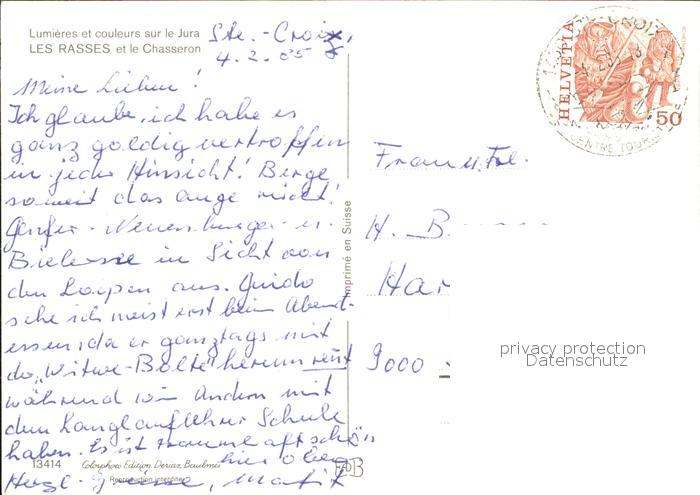 Lumières et couleurs sur le Jura
LES RASSES et le Chasseron
Ste.-Croix,
4.2.85
Meine Lieben!
Ich glaube, ich habe es
ganz goldig vertroffen
in jeder Hinsicht! Berge
soweit das Auge reicht!
Genfer- Neuenburger- u.
Bielersee in Sicht von
den Loipen aus. Guido
sehe ich meist erst beim Abend-
essen, da er ganztags mit
der "Witwe-Bolte" herumrennt
während wir Andern mit
dem Langlauflehrer Schule
haben. Es ist traumhaft schön
hier oben
Herzl. Grüsse,
13414
Colorphoto Edition Deriaz, Baulmes
Reproduction interdite
Imprimé en Suisse
HELVETIA
50
Frau u. Frl.
H. B.
Har
9000
privacy protection
Datenschutz